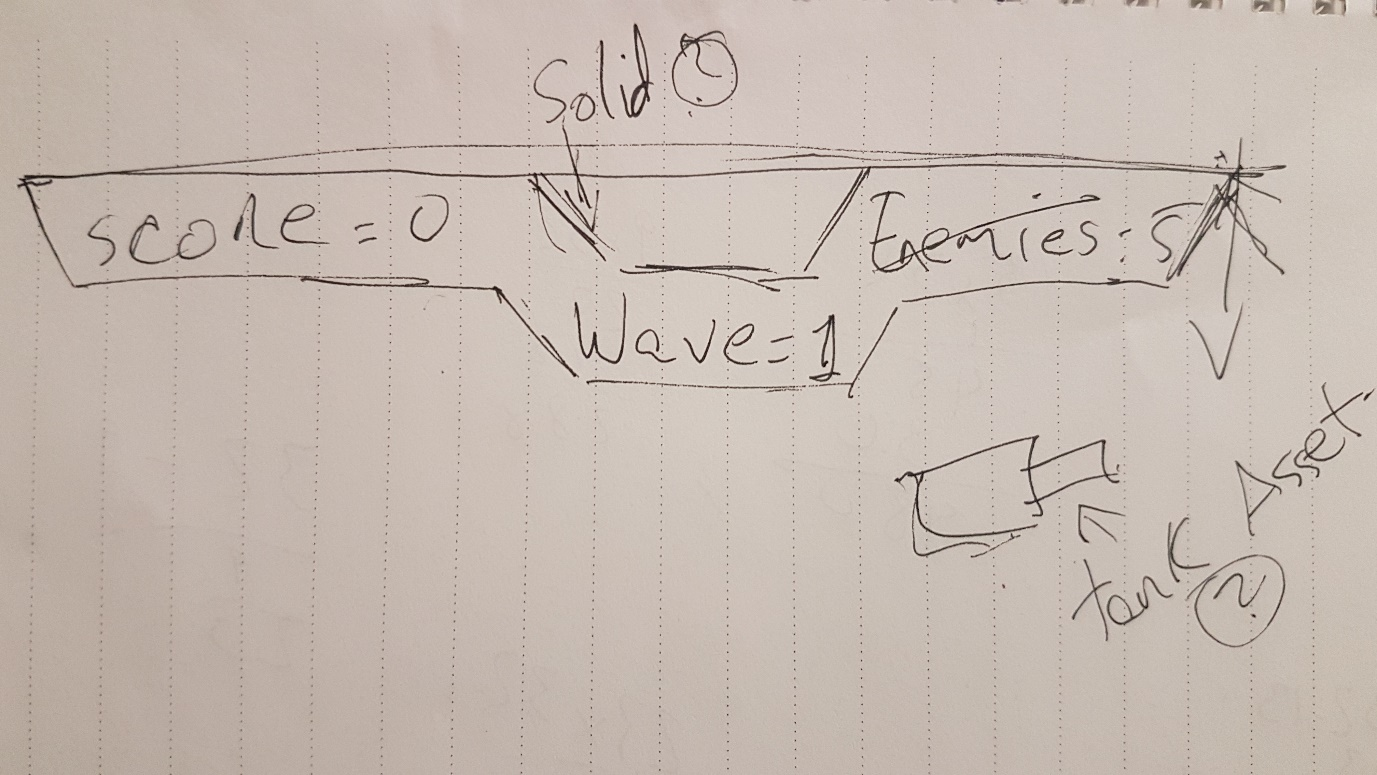 Solid ?
score = 0
Enemies: 5
Wave = 1
tank Asset.
?